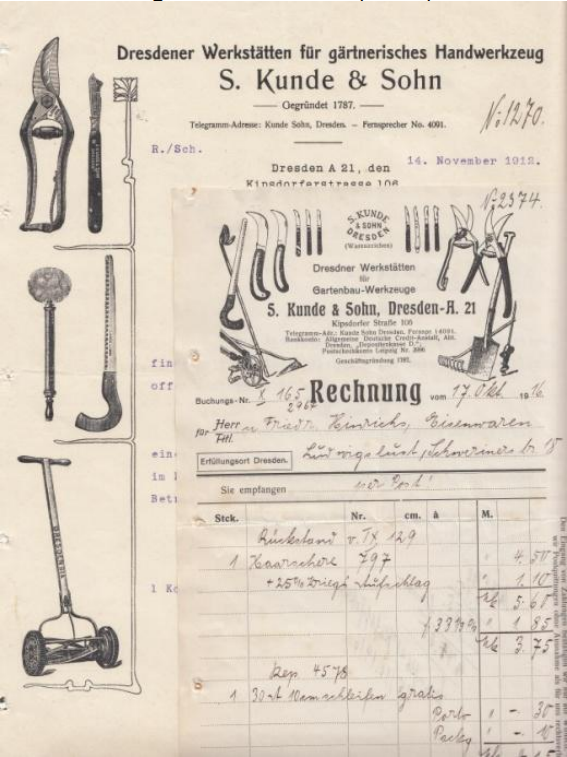 Dresdener Werkstätten für gärtnerisches Handwerkzeug
S. Kunde & Sohn
Gegründet 1787.
Telegramm-Adresse: Kunde Sohn, Dresden. – Fernsprecher No. 4091.
No 1270.
R./Sch.
14. November 1912.
Dresden A 21, den
Kipsdorferstrasse 106
No 2374.
S. KUNDE
& SOHN
DRESDEN
(Warenzeichen)
Dresdner Werkstätten
für
Gartenbau-Werkzeuge
S. Kunde & Sohn, Dresden-A. 21
Kipsdorfer Straße 106
Telegramm-Adr.: Kunde Sohn Dresden. Fernspr. 14091.
Bankkonto: Allgemeine Deutsche Credit-Anstalt, Abt.
Dresden, „Depositenkasse D.“,
Postscheckkonto Leipzig Nr.
Geschäftsgründung 1787.
fin
off
Buchungs-Nr. X 165 Rechnung vom 17. Okt. 1916
2967
für Herr Friedr. Hinrichs, Eisenwaren
Titl.
ein
Erfüllungsort Dresden. Ludwigslust, Schwerinerstr. 18
im
Bet
Sie empfangen per Post!
Stck. Nr. cm. à M.
Rückstand v. IX 129
1 Haarschere 797 " 4.50
+ 25% Kriegs-Aufschlag " 1.10
1 Ko
Mk 5.60
% " 1.85
Mk 3.75
Rep 4578
1 schleifen gratis
Porto " -. 30
Packg " -. 10
DRESDENSIA